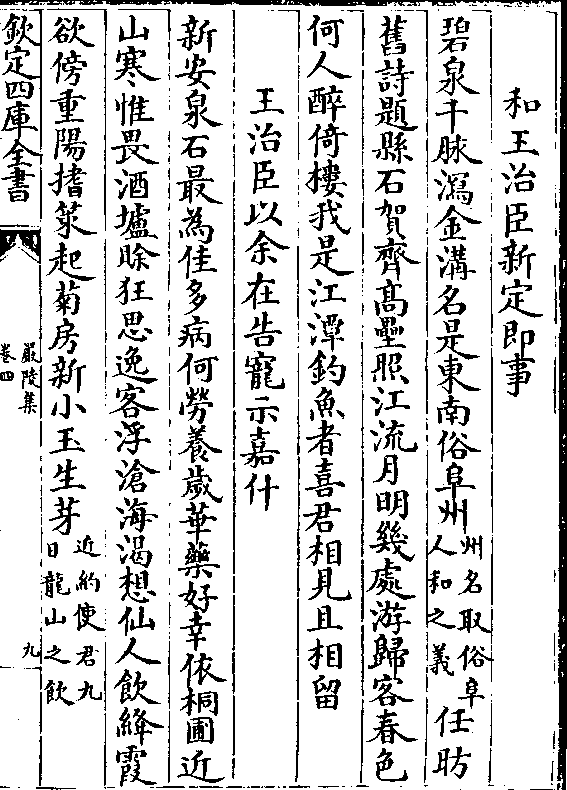 和王治臣新定即事
碧泉千脉瀉金溝名是東南俗阜州州名取俗阜人和之義任昉
舊詩題縣石賀齊髙壘照江流月明幾處游歸客春色
何人醉倚樓我是江潭釣魚者喜君相見且相留
王治臣以余在告寵示嘉什
新安泉石最為佳多病何勞養歲華藥好幸依桐圃近
山寒惟畏酒壚賒狂思逸客浮滄海渴想仙人飲絳霞
欲傍重陽搘策起菊房新小玉生芽近約使君九日龍山之飲
欽定四庫全書
嚴陵集
卷四
九